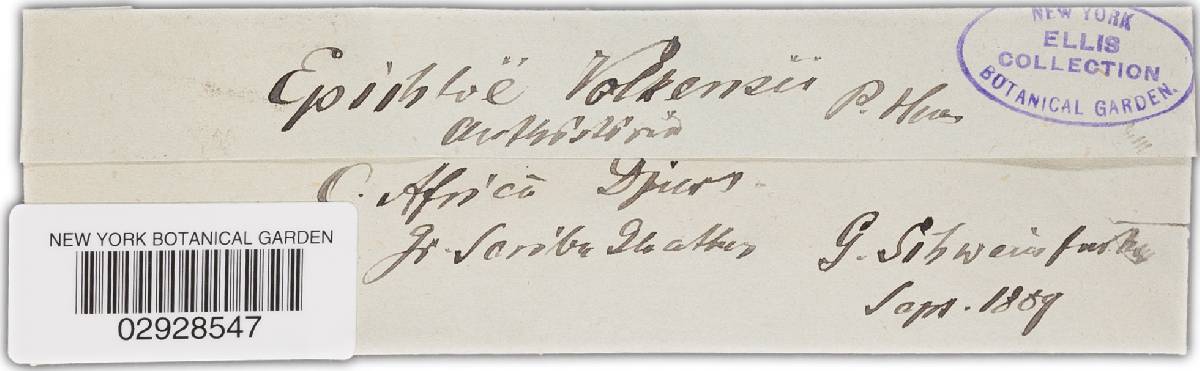 NEW YORK
ELLIS
COLLECTION
BOTANICAL GARDEN.
Epichloë Volkensii P. Hen
Anthistiria
C. Africa Djurs.
G. Schweinfurth
Sept. 1869
NEW YORK BOTANICAL GARDEN
02928547